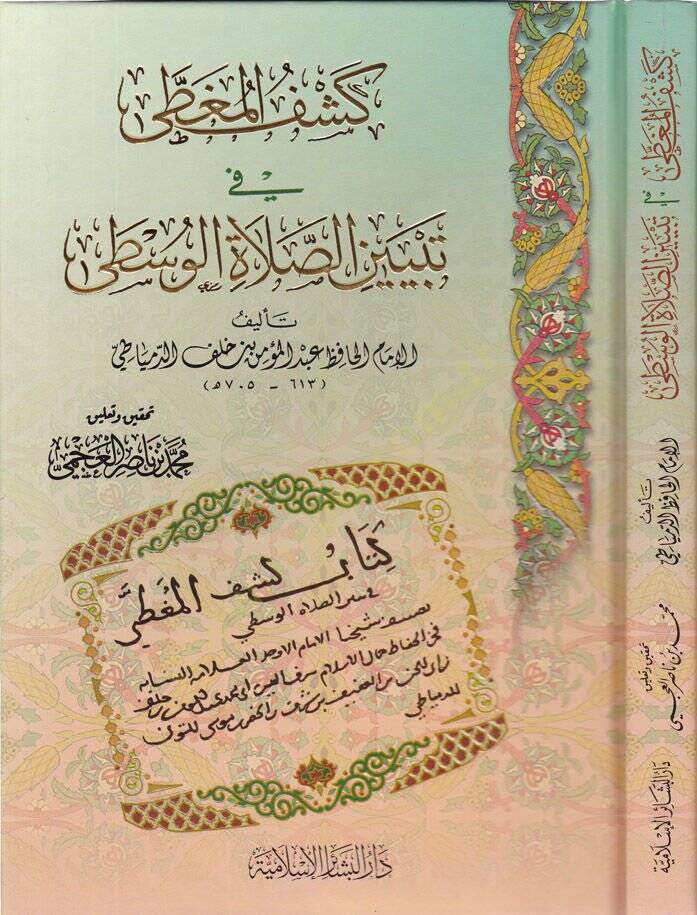 كَشْفُ المُغَطَّى
في
تَبْيِينِ الصَّلَاةِ الوُسْطَى
تأليف
الإمام الحافظ عبد المؤمن بن خلف الدمياطي
(٦١٣ - ٧٠٥ هـ)
تحقيق وتعليق
محمد بن ناصر العجمي
كتاب كشف المغطى
الصلاة الوسطى
شيخنا الامام الاوحد العلامة
خلف
الدمياطي
دار البشائر الإسلامية
كَشْفُ المُغَطَّى في تَبْيِينِ الصَّلَاةِ الوُسْطَى
تأليف
الإمام الحافظ الدمياطي
تحقيق وتعليق
محمد بن ناصر العجمي
دار البشائر الإسلامية